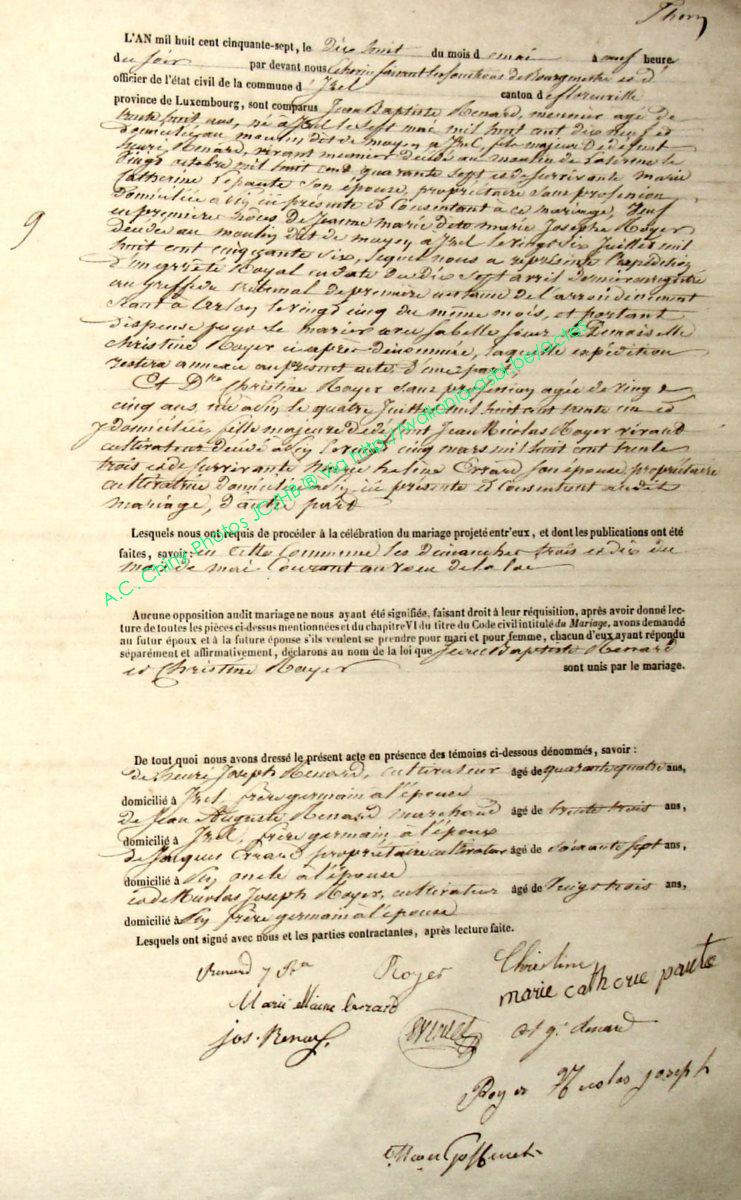 L'AN mil huit cent cinquante-sept, le Dix huit du mois de mai à neuf heure
du soir par devant nous Echevin faisant les fonctions de Bourgmestre et d'
officier de l'état civil de la commune d'Izel canton de florenville
province de Luxembourg, sont comparus Jean Baptiste Renard, meunier agé de
trente huit ans, né à Izel le sept mai mil huit cent dix neuf et
domicilié au moulin dit de moyen à Izel, fils majeur de défunt
henri Renard, vivant meunier décédé au moulin de le
vingt octobre mil huit cent quarante sept et de survivante marie
Catherine son épouse, propriétaire sans profession
domiciliée à ici présente et consentant à ce mariage, Veuf
en première noces de Jeanne marie dite marie Josephe Royer
décédée au moulin dit de moyen à Izel le vingt six Juillet mil
huit cent cinquante six, lequel nous a représenté l'expédition
d'un arrêté Royal en date du dix sept avril dernier enregistré
au Greffe du tribunal de première instance de l'arrondissement
séant à Arlon le vingt cinq du même mois, et portant
dispense pour se marier avec sa belle soeur Demoiselle
Christine Royer ci après dénommée, laquelle expédition
restera annexée au présent acte d'une part
Et Dlle Christine Royer sans profession agée de vingt
cinq ans, née à le quatre Juillet mil huit cent trente un et
y domiciliée, fille majeure de défunt Jean Nicolas Royer vivant
cultivateur décédé à le vingt cinq mars mil huit cent trente
trois et de survivante marie helène Errard son épouse propriétaire
cultivatrice domiciliée à ici présente et consentant audit
mariage, d'autre part
Lesquels nous ont requis de procéder à la célébration du mariage projeté entr'eux, et dont les publications ont été
faites, savoir: en cette Commune les dimanches trois et dix du
mois de mai courant au voeu de la loi
Aucune opposition audit mariage ne nous ayant été signifiée, faisant droit à leur réquisition, après avoir donné lec-
ture de toutes les pièces ci-dessus mentionnées et du chapitre VI du titre du Code civil intitulé du Mariage, avons demandé
au futur époux et à la future épouse s'ils veulent se prendre pour mari et pour femme, chacun d'eux ayant répondu
séparément et affirmativement, déclarons au nom de la loi que Jean Baptiste Renard
et Christine Royer sont unis par le mariage.
De tout quoi nous avons dressé le présent acte en présence des témoins ci-dessous dénommés, savoir :
de henri Joseph Renard, cultivateur âgé de quarante quatre ans,
domicilié à Izel, frère germain à l'épouse
de Jean Auguste Renard marchand âgé de trente trois ans,
domicilié à Izel, frère germain à l'époux
de Jacques Errard propriétaire cultivateur âgé de soixante sept ans,
domicilié à oncle à l'épouse
et de Nicolas Joseph Royer, cultivateur âgé de Vingt trois ans,
domicilié à frère germain à l'épouse
Lesquels ont signé avec nous et les parties contractantes, après lecture faite.
Renard J Bte Royer Christine
marie catherie paute
Marie Elaine Errard
jos. Renard
Royer Nicolas joseph
9
A.C. Chiny Photos JCSHB @ via http://wallonia-asbl.be/actes